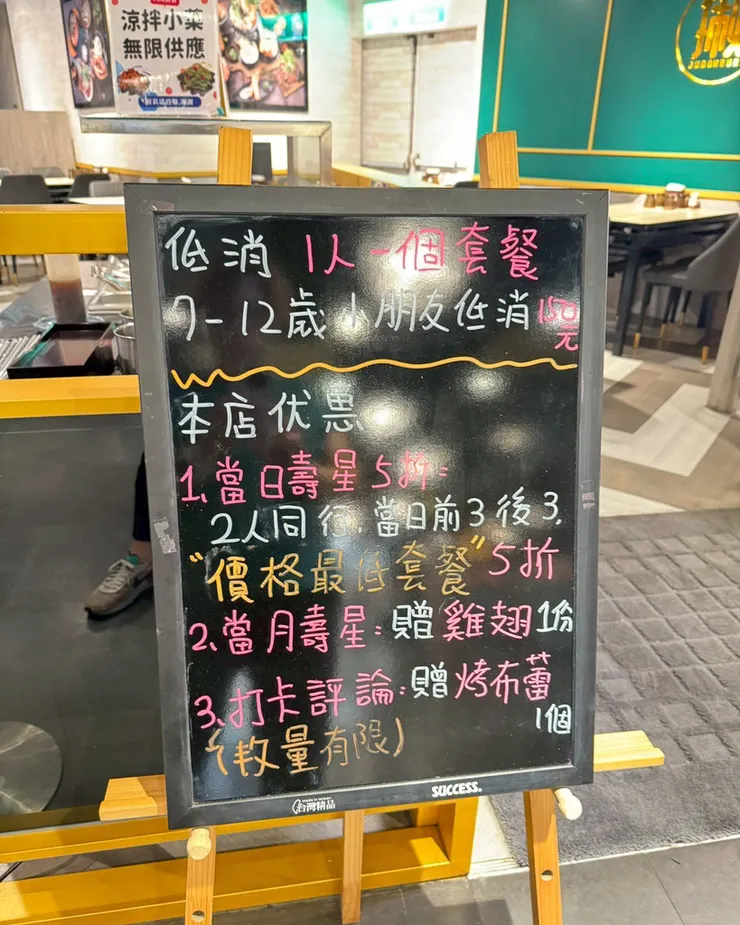 涼拌小菜
無限供應
低消 1人一個套餐
7-12歲小朋友低消150元
本店优惠
1.當日壽星5折:
2人同行.當日前3後3.
"價格最低套餐"5折
2.當月壽星:贈雞翅1份
3.打卡評論:贈烤布蕾
1個
(数量有限)
台灣精品
SUCCESS.